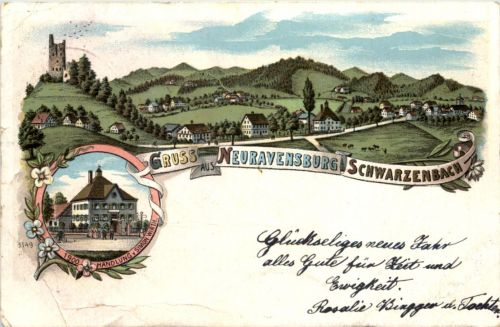 GRUSS AUS NEURAVENSBURG SCHWARZENBACH
3149
HANDLUNG
Glückseliges neues Jahr
alles Gute für Zeit und
Ewigkeit.
Rosalie u. Tochter